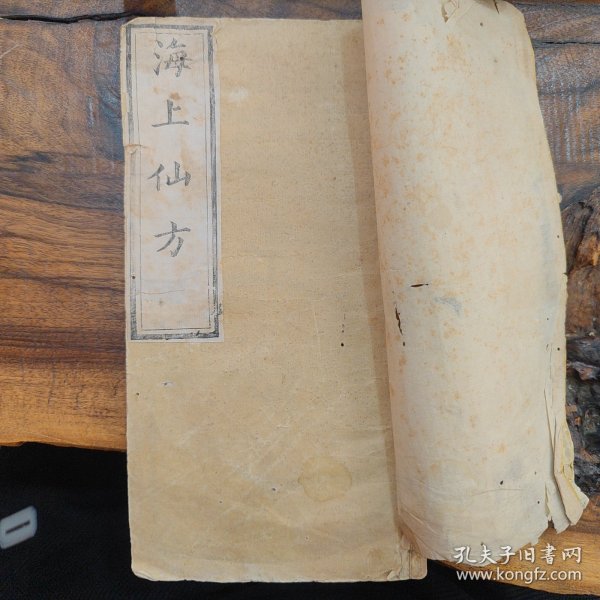 海上仙方
孔夫子旧書网
www.kongfz.com